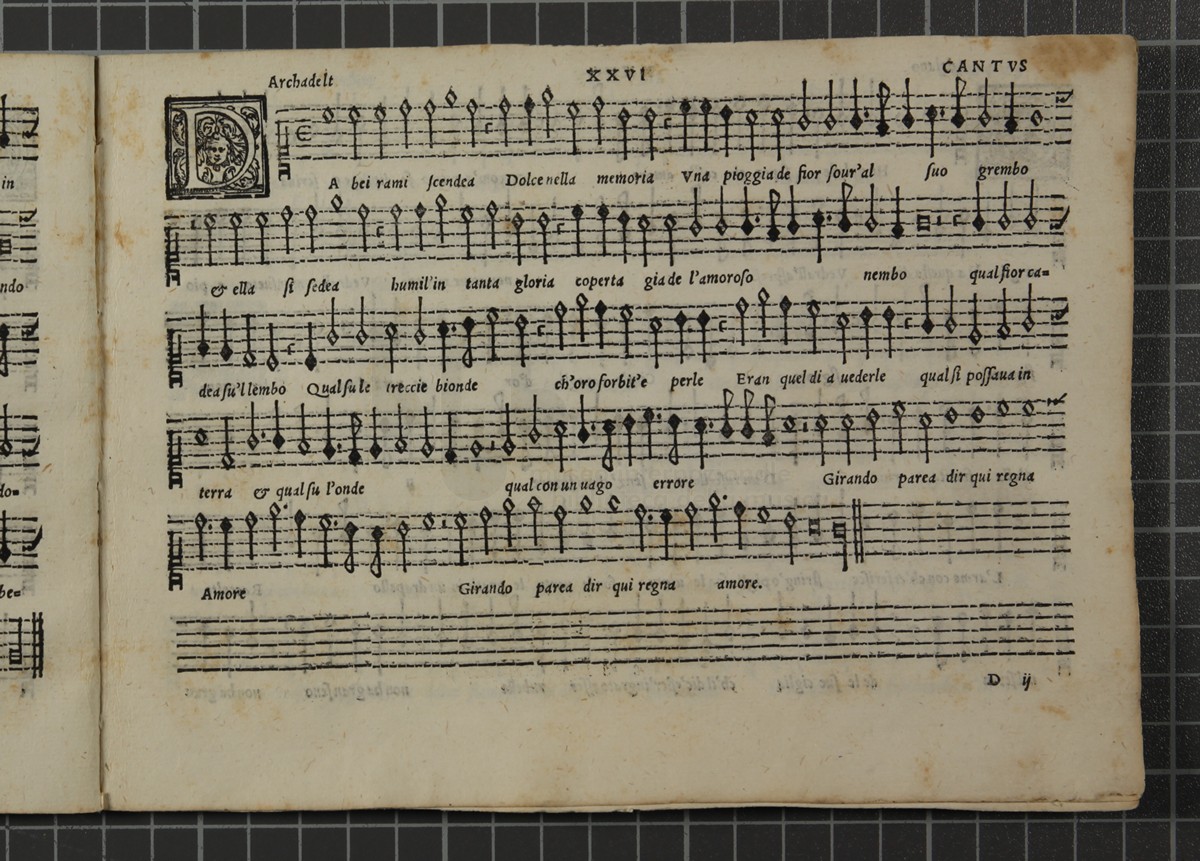 in
ndo
do=
be=
Archadelt XXVI CANTVS
D A bei rami ſcendea Dolce nella memoria Vna pioggia de fior ſour'al ſuo grembo
& ella ſi ſedea humil'in tanta gloria coperta gia de l'amoroſo nembo qual fior ca=
dea ſu'l lembo Qual ſu le treccie bionde ch'oro forbit'e perle Eran quel di a uederle qual ſi poſſaua in
terra & qual ſu l'onde qual con un uago errore Girando parea dir qui regna
Amore Girando parea dir qui regna amore.
D ij